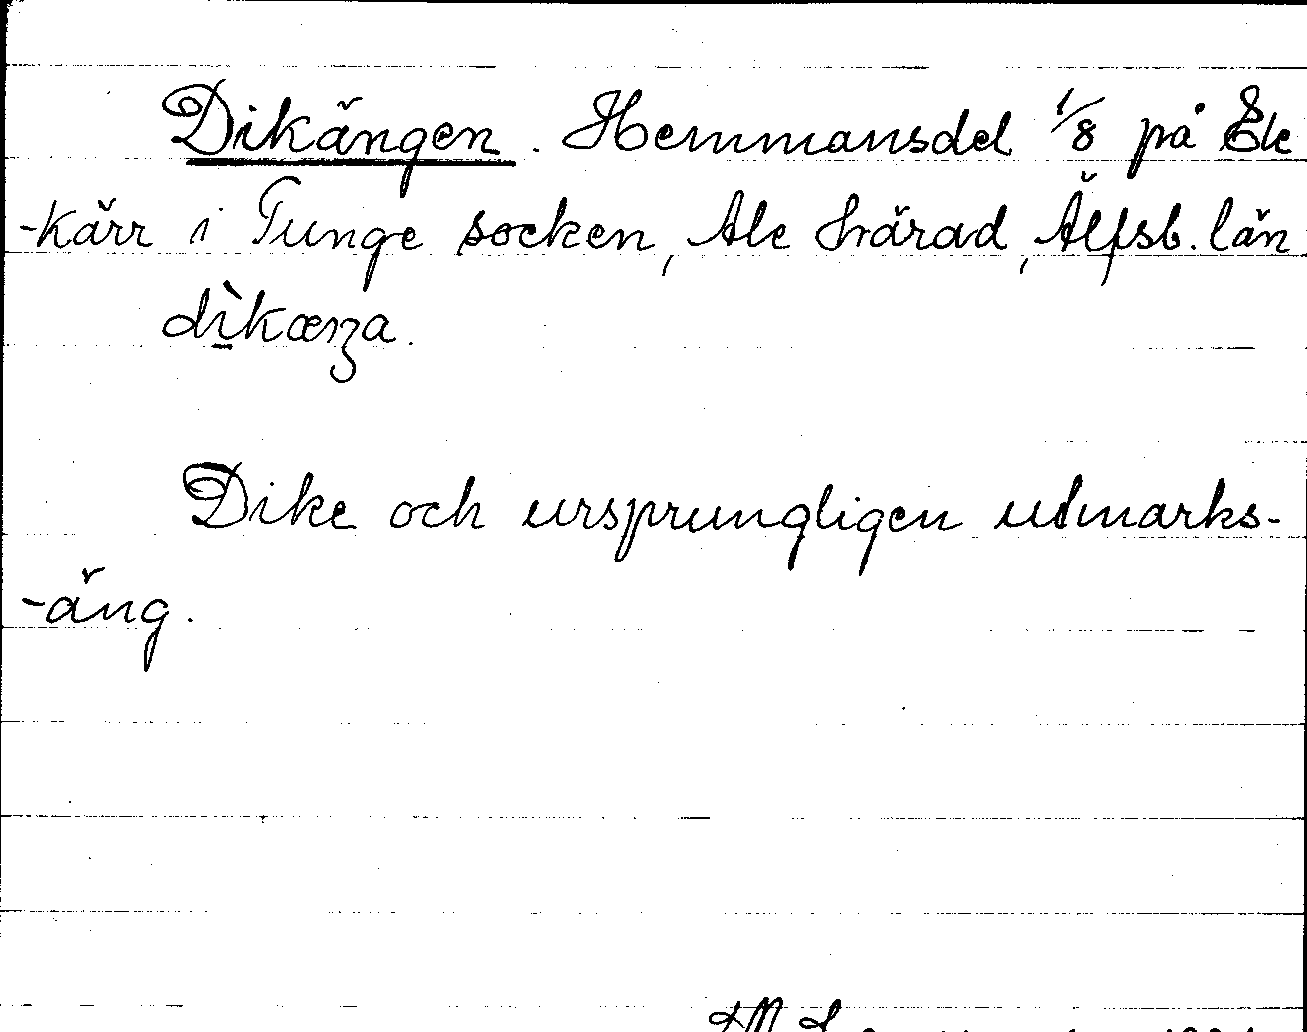 Dikängen. Hemmansdel 1/8 på Ale
-kärr i Tunge socken, Ale härad, Älfsb. län
dìkænza.
Dike och ursprungligen utmarks-
-äng.